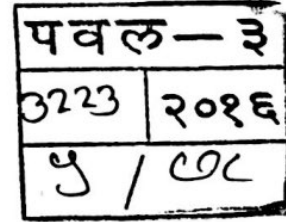 पवल — ३
3223 २०१६
५ / ७८